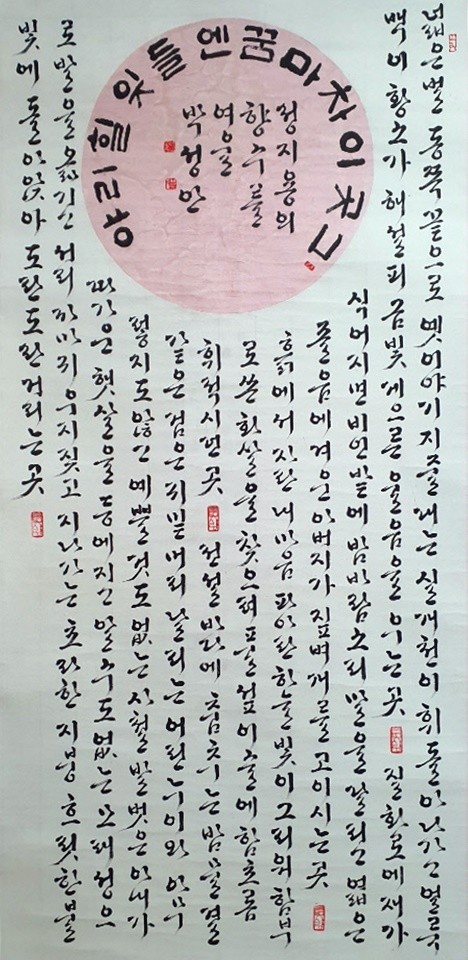 넓은 벌 동쪽 끝으로 옛이야기 지줄대는 실개천이 휘돌아 나가고 얼룩
백이 황소가 해설피 금빛 게으른 울음을 우는 곳 질화로에 재가
식어지면 비인 밭에 밤바람 소리 말을 달리고 엷은
졸음에 겨운 아버지가 짚벼개를 고이시는 곳
흙에서 자란 내 마음 파아란 하늘빛이 그리워 함부
로 쏜 화살을 찾으려 풀섶 이슬에 함초롬
휘적시던 곳 전설 바다에 춤추는 밤물결
같은 검은 귀밑머리 날리는 어린 누이와 아무
렇지도 않고 예쁠 것도 없는 사철 발벗은 아내가
따가운 햇살을 등에 지고 알 수도 없는 모래성으
로 발을 옮기고 서리 까마귀 우지짖고 지나가는 초라한 지붕 흐릿한 불
빛에 돌아앉아 도란도란 거리는 곳
그곳이 차마 꿈엔들 잊힐리야
정지용의
향수를
여울
박성안